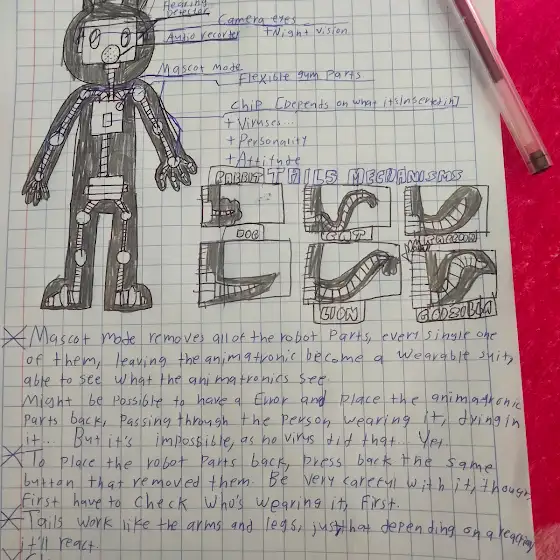 Hearing
Detector
Camera eyes
+Night vision
Audio recorder
Mascot mode
Flexible gum Parts
Chip [Depends on what it's inserted in]
+ Viruses...
+ Personality
+ Attitude
TAILS MECHANISMS
RABBIT
DOG
CAT
LION
GODZILLA
Mascot mode removes all of the robot Parts, every single one
of them, leaving the animatronic become a wearable suit,
able to see what the animatronics see.
Might be Possible to have a Error and Place the animatronic
Parts back, Passing through the Person wearing it, dying in
it... But it's impossible, as no virus did that... Yet
To Place the robot Parts back, press back the same
button that removed them. Be very careful with it, though,
First have to check who's wearing it, First.
Tails work like the arms and legs, just that depending on a reaction
it'll react